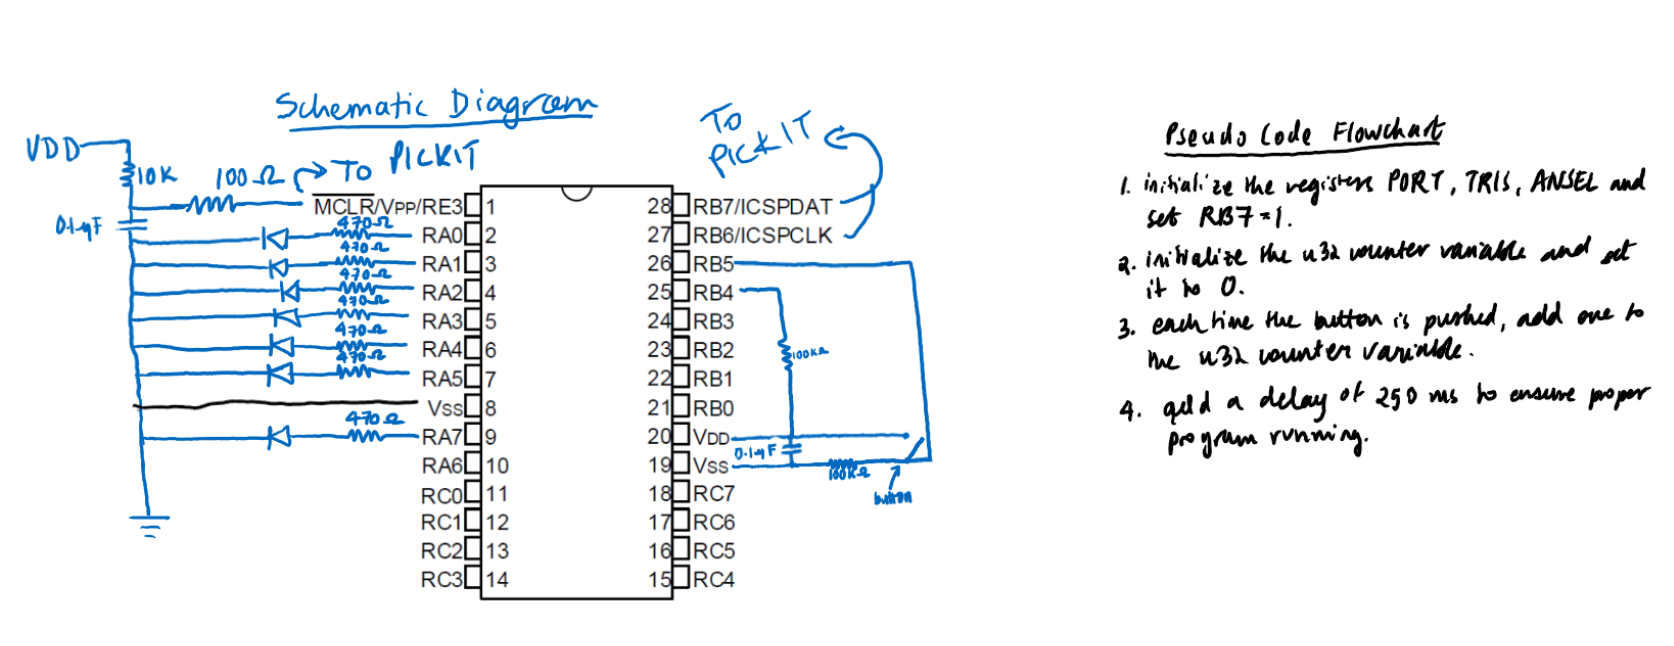 Schematic Diagram
VDD
10K
100Ω
To PICKIT
0.1μF
470Ω
470Ω
470Ω
470Ω
470Ω
470Ω
470Ω
MCLR/VPP/RE3 1
RA0 2
RA1 3
RA2 4
RA3 5
RA4 6
RA5 7
VSS 8
RA7 9
RA6 10
RC0 11
RC1 12
RC2 13
RC3 14
To
PICKIT
28 RB7/ICSPDAT
27 RB6/ICSPCLK
26 RB5
25 RB4
24 RB3
23 RB2
22 RB1
21 RB0
20 VDD
19 VSS
18 RC7
17 RC6
16 RC5
15 RC4
100KΩ
0.1μF
100KΩ
button
Pseudo Code Flowchart
1. initialize the registers PORT, TRIS, ANSEL and
set RB7=1.
2. initialize the u32 counter variable and set
it to 0.
3. each time the button is pushed, add one to
the u32 counter variable.
4. a delay of 250 ms to ensure proper
program running.